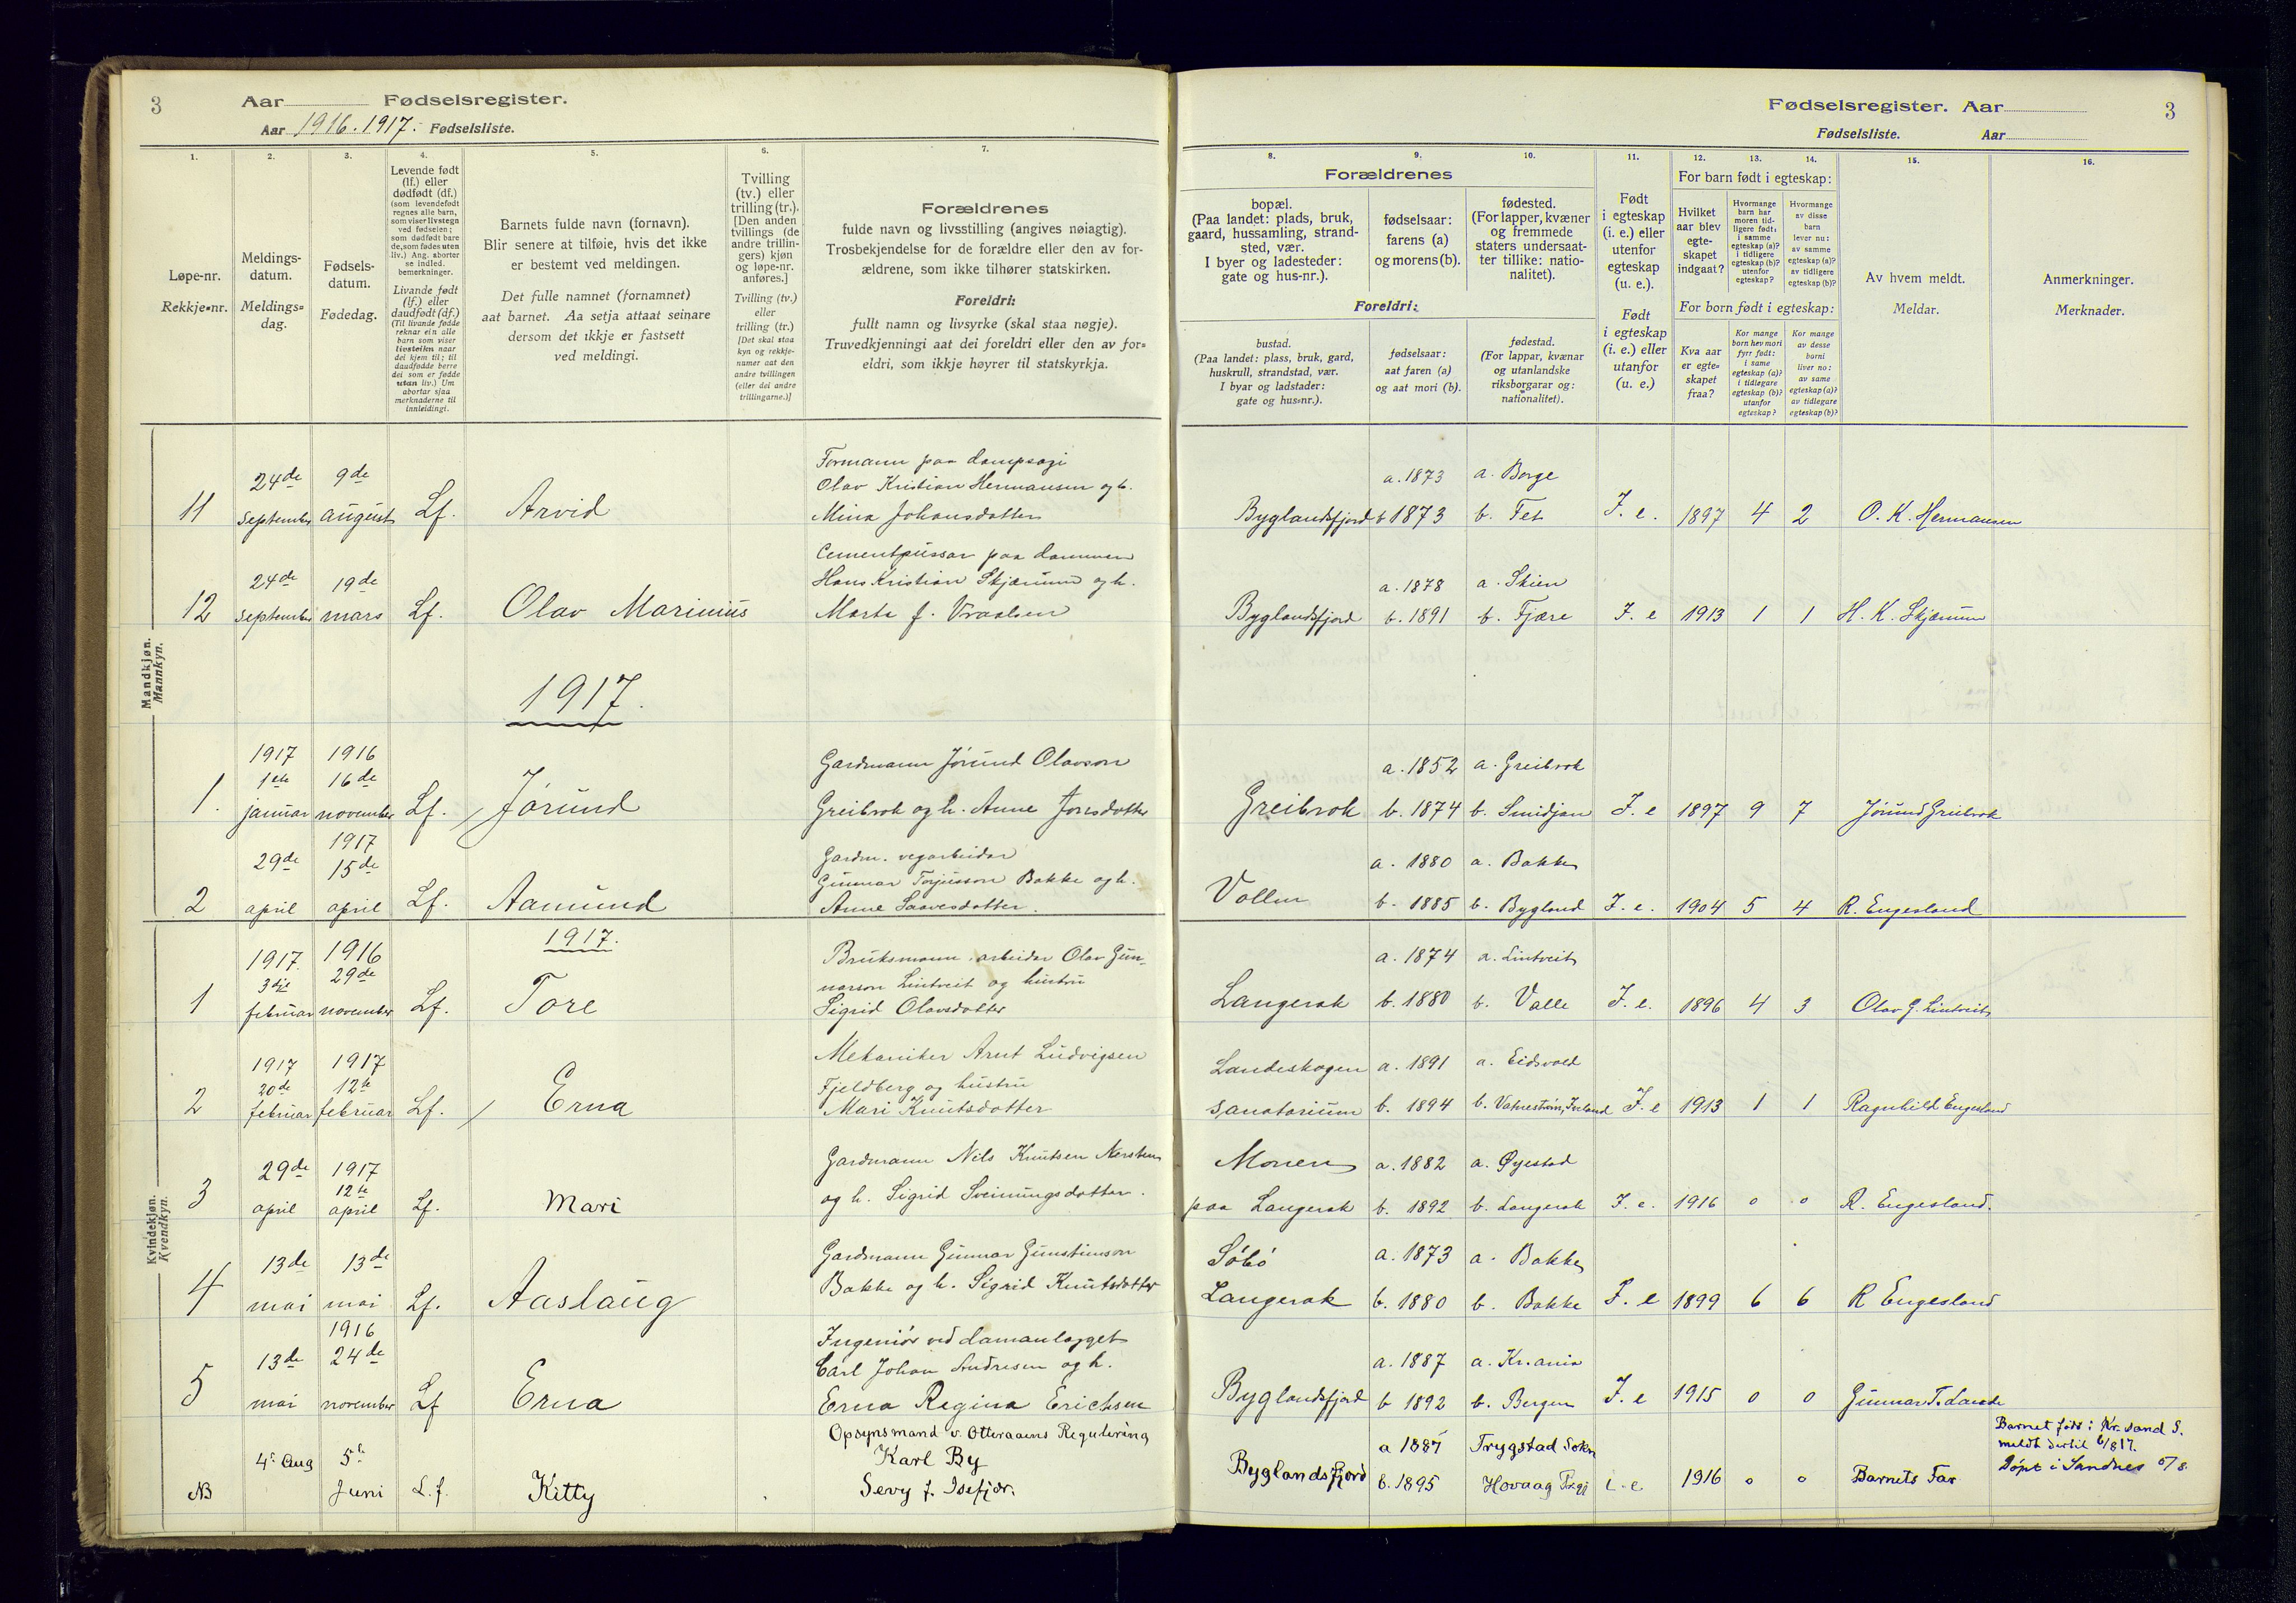 3 Aar Fødselsregister.
Aar 1916.1917. Fødselsliste.
Fødselsregister. Aar 3
Fødselsliste. Aar
1.
Løpe-nr.
Rekkje=nr.
2.
Meldings-
datum.
Meldings=
dag.
3.
Fødsels-
datum.
Fødedag.
4.
Levende født
(lf.) eller
dødfødt (df.)
(som levendefødt
regnes alle barn,
som viser livstegn
ved fødselen;
som dødfødt bare
de, som fødes uten
liv.) Ang. aborter
se indled.
bemerkninger.
Livande født
(lf.) eller
daudfødt (df.)
(Til livande fødde
reknar ein alle
barn som viser
livsteikn naar
dei kjem til; til
daudfødde berre
dei som er fødde
utan liv.) Um
abortar sjaa
merknaderne til
innleidingi.
5.
Barnets fulde navn (fornavn).
Blir senere at tilføie, hvis det ikke
er bestemt ved meldingen.
Det fulle namnet (fornamnet)
aat barnet. Aa setja attaat seinare
dersom det ikkje er fastsett
ved meldingi.
6.
Tvilling
(tv.) eller
trilling (tr.).
[Den anden
tvillings (de
andre trillin-
gers) kjøn
og løpe-nr.
anføres.]
Tvilling (tv.)
eller
trilling (tr.)
[Det skal staa
kyn og rekkje-
numer aat den
andre tvillingen
(eller dei andre
trillingarne.)]
7.
Forældrenes
fulde navn og livsstilling (angives nøiagtig).
Trosbekjendelse for de forældre eller den av for-
ældrene, som ikke tilhører statskirken.
Foreldri:
fullt namn og livsyrke (skal staa nøgje).
Truvedkjenningi aat dei foreldri eller den av for=
eldri, som ikkje høyrer til statskyrkja.
Forældrenes
8.
bopæl.
(Paa landet: plads, bruk,
gaard, hussamling, strand-
sted, vær.
I byer og ladesteder:
gate og hus-nr.).
9.
fødselsaar:
farens (a)
og morens (b).
10.
fødested.
(For lapper, kvæner
og fremmede
staters undersaat-
ter tillike: natio-
nalitet).
Foreldri:
bustad.
(Paa landet: plass, bruk, gard,
huskrull, strandstad, vær.
I byar og ladstader:
gate og hus=nr.).
fødselsaar:
aat faren (a)
og aat mori (b).
fødestad.
(For lappar, kvænar
og utanlandske
riksborgarar og:
nationalitet).
11.
Født
i egteskap
(i. e.) eller
utenfor
egteskap
(u. e.).
Født
i egteskap
(i. e.) eller
utanfor
(u. e.)
For barn født i egteskap:
12.
Hvilket
aar blev
egte-
skapet
indgaat?
13.
Hvormange
barn har
moren tid-
ligere født:
i samme
egteskap (a)?
i tidligere
egteskap (b)?
utenfor
egteskap?
14.
Hvormange
av disse
barn
lever nu:
av samme
egteskap (a)?
av tidligere
egteskap (b)?
For born født i egteskap:
Kva aar
er egte=
skapet
fraa?
Kor mange
born hev mori
fyrr født:
i same
egteskap (a)?
i tidlegare
egteskap (b)?
utanfor
egteskap?
Kor mange
av desse
borni
liver no:
av same
egteskap (a)?
av tidlegare
egteskap (b)?
15.
Av hvem meldt.
Meldar.
16.
Anmerkninger.
Merknader.
Mandkjøn.
Mannkyn.
11 24de september 9de august Lf. Arvid
Formann paa dampsagi
Olav Kristian Hermansen og h.
Mina Johansdotter
Byglandsfjord a. 1873 a. Borge
b 1873 b. Fet I. e. 1897 4 2 O. K. Hermansen
12 24de september 19de mars Lf. Olav Marinius
Cementpussar paa dammen
Hans Kristian Skjærum og h.
Marta f. Vraalsen
Byglandsfjord a. 1878 a. Skien
b. 1891 b. Fjære I. e 1913 1 1 H. K. Skjærum
1917.
1. 1917 1ste januar 1916 16de november Lf. Jórund
Gardmann Jórund Olavson
Greibrok og h. Anne Jonsdotter
Greibrok a. 1852 a. Greibrok
b. 1874 b. Smidjan I. e 1897 9 7 Jórund Greibrok
2 29de april 1917 15de april Lf. Aamund
Gardm. vegarbeidar
Gunnar Torjusson Bakke og h.
Anne Saavesdotter.
Vollen a. 1880 a. Bakke
b. 1885 b. Bygland I. e. 1904 5 4 R. Engesland
Kvindekjøn.
Kvendkyn.
1917.
1 1917. 3dje februar 1916 29de november Lf. Tore
Bruksmann, arbeidar Olav Gun-
narson Lintveit og hustru
Sigrid Olavsdotter
Langerak a. 1874 a. Lintveit
b. 1880 b. Valle I. e. 1896 4 3 Olav G. Lintveit
2 1917 20de februar 1917 12te februar Lf. Erna
Mekaniker Arnt Ludvigsen
Fjeldberg og hustru
Mari Knutsdotter
Landeskogen a. 1891 a. Eidsvold
sanatorium b. 1894 b. Vatnestrøm, Iveland I. e 1913 1 1 Ragnhild Engesland
3 29de april 1917 12te april Lf. Mari
Gardmann Nils Knutsen Nersten
og h. Sigrid Sveinungsdotter.
Monen a. 1882 a. Øyestad
paa Langerak b. 1892 b. Langerak I. e. 1916 0 0 R. Engesland.
4 13de mai 13de mai Lf. Aaslaug
Gardmann Gunnar Gunstinson
Bakke og h. Sigrid Knutsdotter
Sóbó a. 1873 a. Bakke
Langerak b. 1880 b. Bakke I. e 1899 6 6 R Engesland
5 13de mai 1916 24de november Lf Erna
Ingeniór ved damanlegget
Carl Johan Andresen og h.
Erna Regina Erichsen
Byglandsfjord a. 1887 a. Kr.ania
b 1892 b. Bergen I. e 1915 0 0 Gunnar T. Lande
NB 4de Aug 5te Juni L.f. Kitty
Opsynsmand v. Otteraaens Regulering
Karl By
Sevy f. Isefjær.
Byglandsfjord a 1887 Trygstad Sokn
b. 1895 Hovaag Prgj i. e 1916 0 0 Barnets Far
Barnet født i Kr.sand S.
meldt dertil 6/8 17.
Døpt i Sandnes